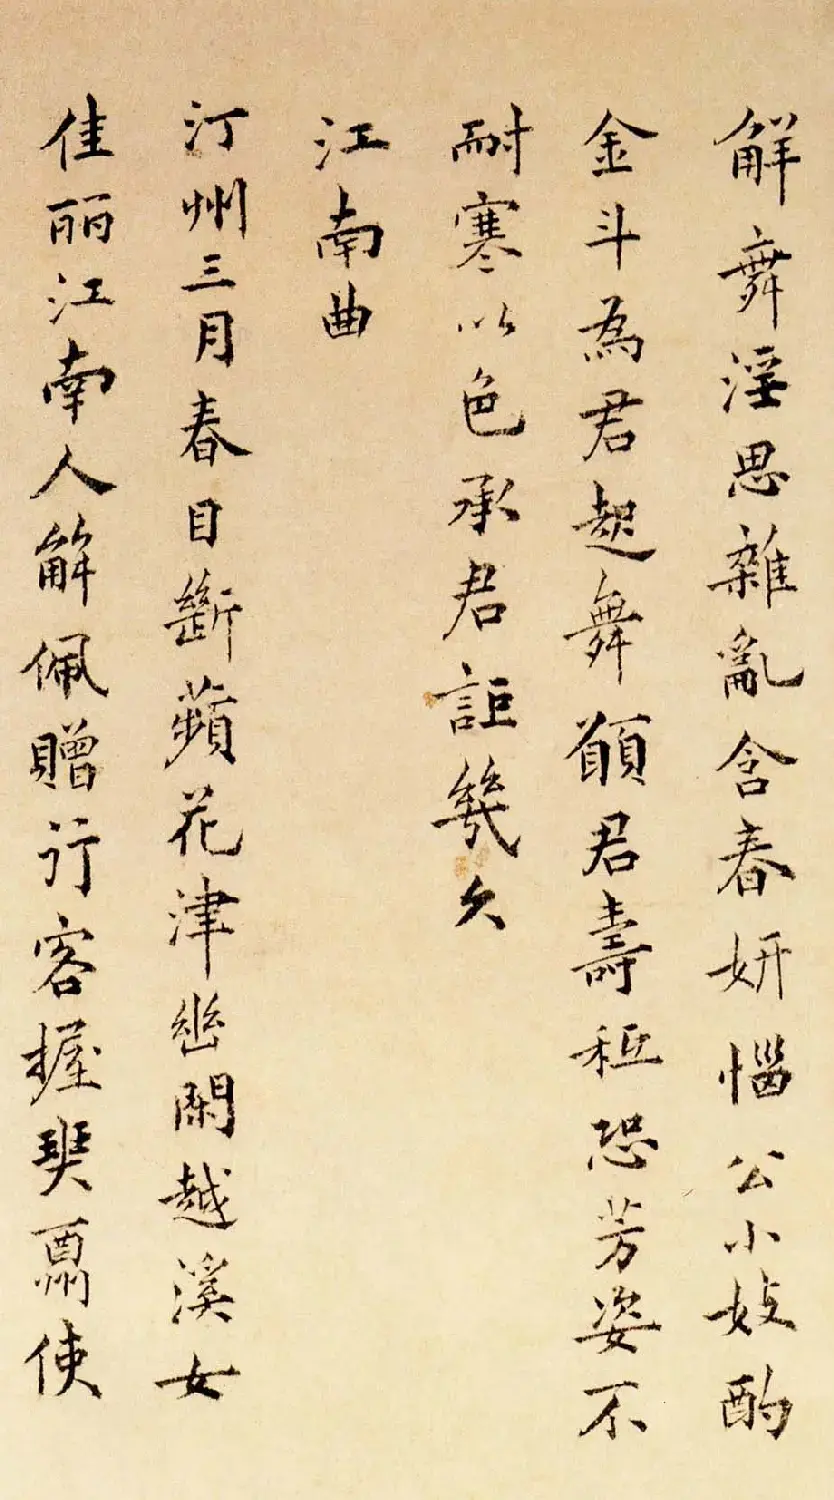 觧舞淫思雜亂含春妍惱公小妓酌
金斗為君起舞願君壽秪恐芳姿不
耐寒以色承君詎幾久
江南曲
汀州三月春目斷蘋花津幽閑越溪女
佳丽江南人觧佩贈行客握酬使